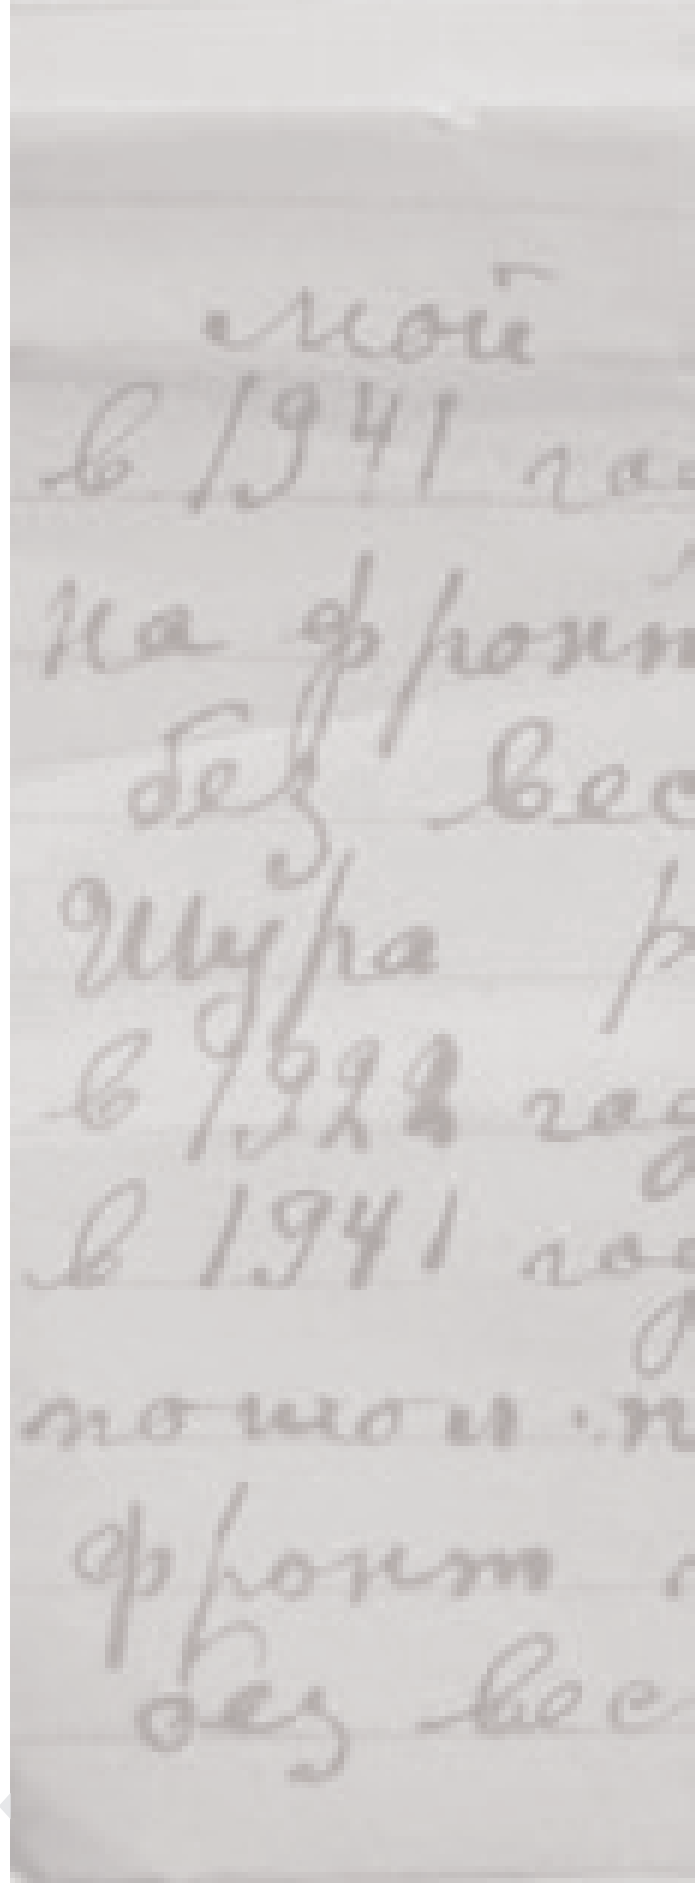 мой
в 1941 год
на фронт
без вес
Шура р
в 1922 год
в 1941 год
пошол н
фронт
без вес